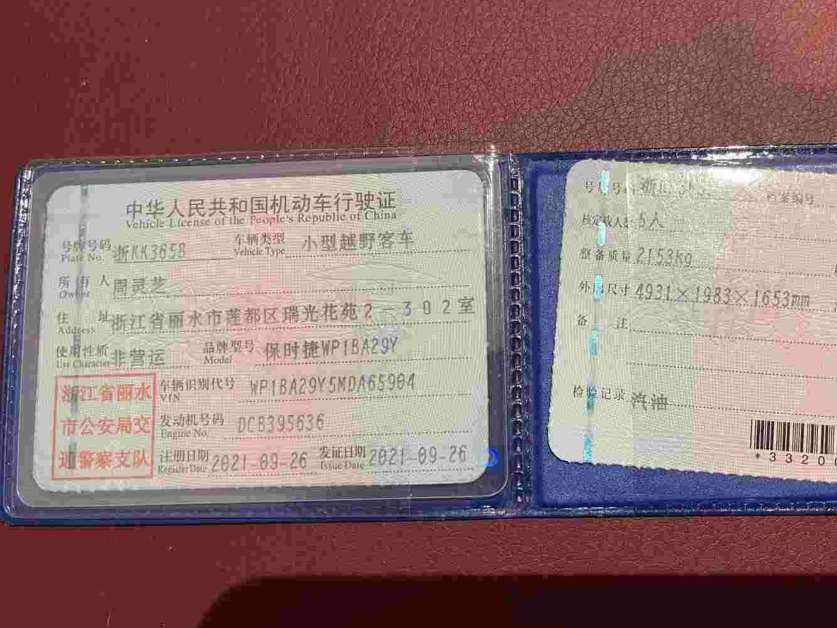 中华人民共和国机动车行驶证
Vehicle License of the People's Republic of China
号牌号码 浙KK3658 车辆类型 小型越野客车
Plate No. Vehicle Type
所有人 周灵芝
Owner
住址 浙江省丽水市莲都区瑞光花苑2-302室
Address
使用性质 非营运 品牌型号 保时捷WP1BA29Y
Use Character Model
浙江省丽水
市公安局交
通警察支队
车辆识别代号 WP1BA29Y5MDA65904
VIN
发动机号码 DCB395636
Engine No.
注册日期 2021-09-26 发证日期 2021-09-26
Register Date Issue Date
号牌号码 档案编号
核定载人数 5人
整备质量 2153kg
外廓尺寸 4931×1983×1653mm
备注
检验记录 汽油
*3320